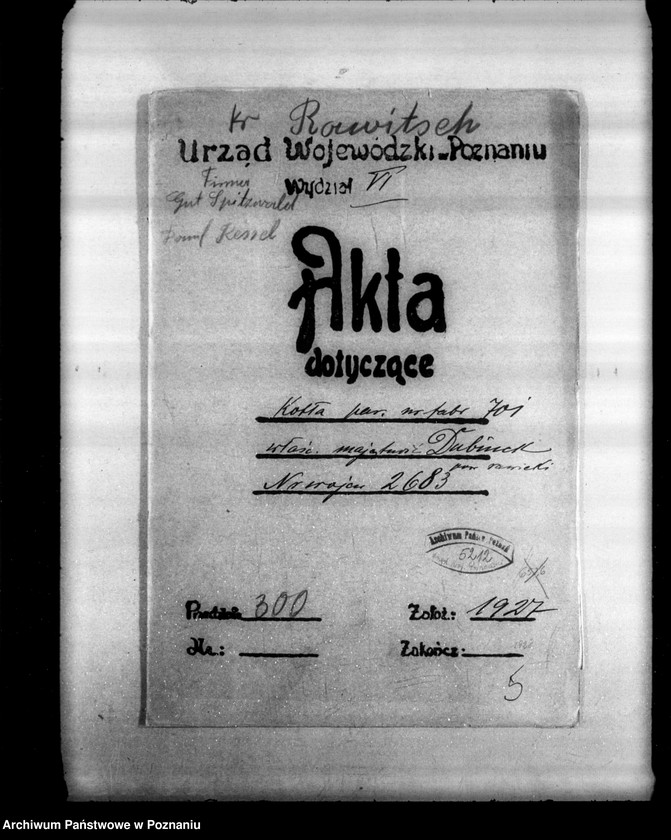 kr Rawitsch
Urząd Wojewódzki w Poznaniu
Wydział VI
Firma
Gut Spitzwald
Kessel
Akta
dotyczące
Kotła par. nr. fabr 701
właśc. majętność Dubinek
pow rawicki
Nr wojew 2683
Archiwum Państw. Poznań
5212
Przedział 300
Założ.: 1927
Nr.:
Zakończ:
5
Archiwum Państwowe w Poznaniu